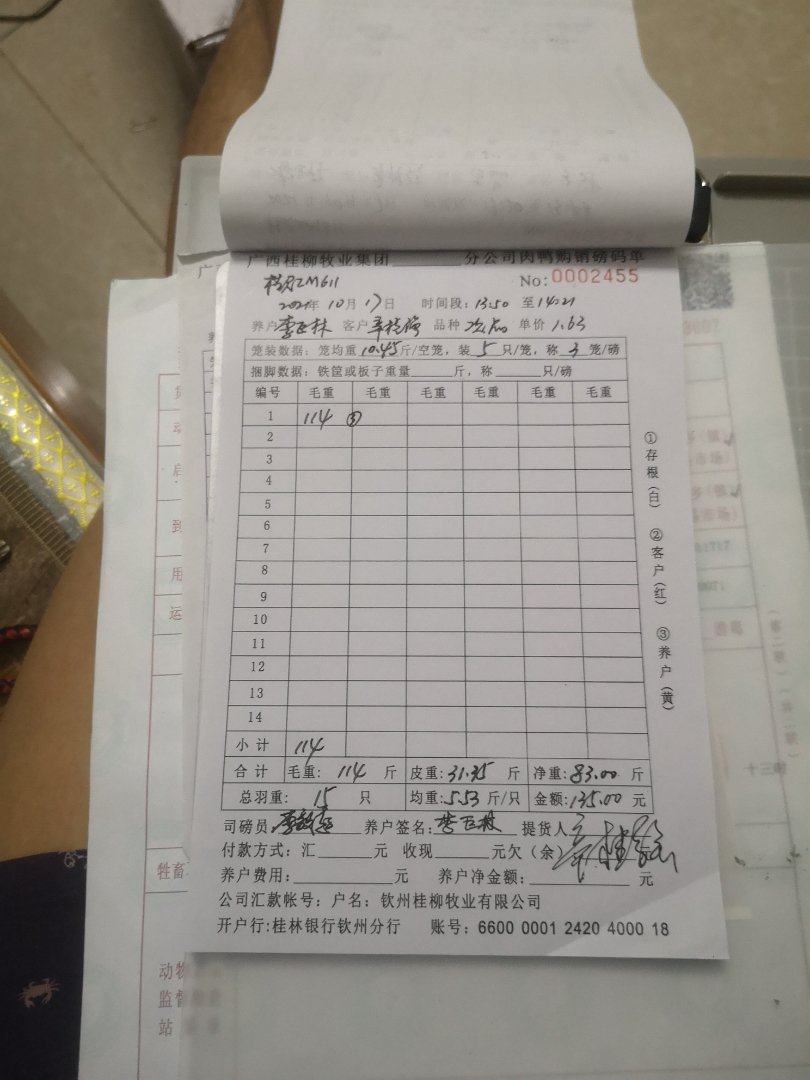 广西桂柳牧业集团______分公司肉鸭购销磅码单
No: 0002455
2021年 10月 17日 时间段: 13:50 至 14:21
养户 李正林 客户 品种 次品 单价 1.63
笼装数据: 笼均重 10.45 斤/空笼, 装 5 只/笼, 称 3 笼/磅
捆脚数据: 铁筐或板子重量______斤, 称______只/磅
编号 毛重 毛重 毛重 毛重 毛重 毛重
1 114 ③
2
3
4
5
6
7
8
9
10
11
12
13
14
小计 114
合计 毛重: 114 斤 皮重: 31.35 斤 净重: 83.00 斤
总羽重: 15 只 均重: 5.53 斤/只 金额: 135.00 元
司磅员 养户签名: 李正林 提货人
付款方式: 汇______元 收现______元欠(余)
养户费用:______元 养户净金额:______元
公司汇款帐号: 户名: 钦州桂柳牧业有限公司
开户行:桂林银行钦州分行 账号: 6600 0001 2420 4000 18
①存根(白) ②客户(红) ③养户(黄)
动物
监督
站